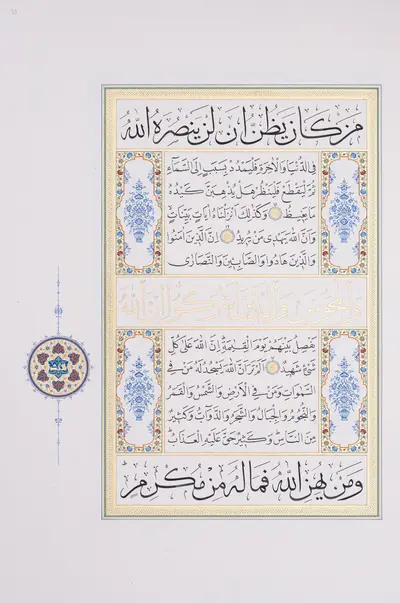 من كان يظن ان لن ينصره الله
في الدنيا والآخرة فليمدد بسبب الى السماء
ثم ليقطع فلينظر هل يذهبن كيده
ما يغيظ وكذلك انزلناه ايات بينات
وان الله يهدى من يريد ان الذين امنوا
والذين هادوا والصابئين والنصارى
والمجوس والذين اشركوا ان الله
يفصل بينهم يوم القيمة ان الله على كل
شئ شهيد الم تر ان الله يسجد له من في
السموات ومن في الارض والشمس والقمر
والنجوم والجبال والشجر والدواب وكثير
من الناس وكثير حق عليه العذاب
ومن يهن الله فما له من مكرم